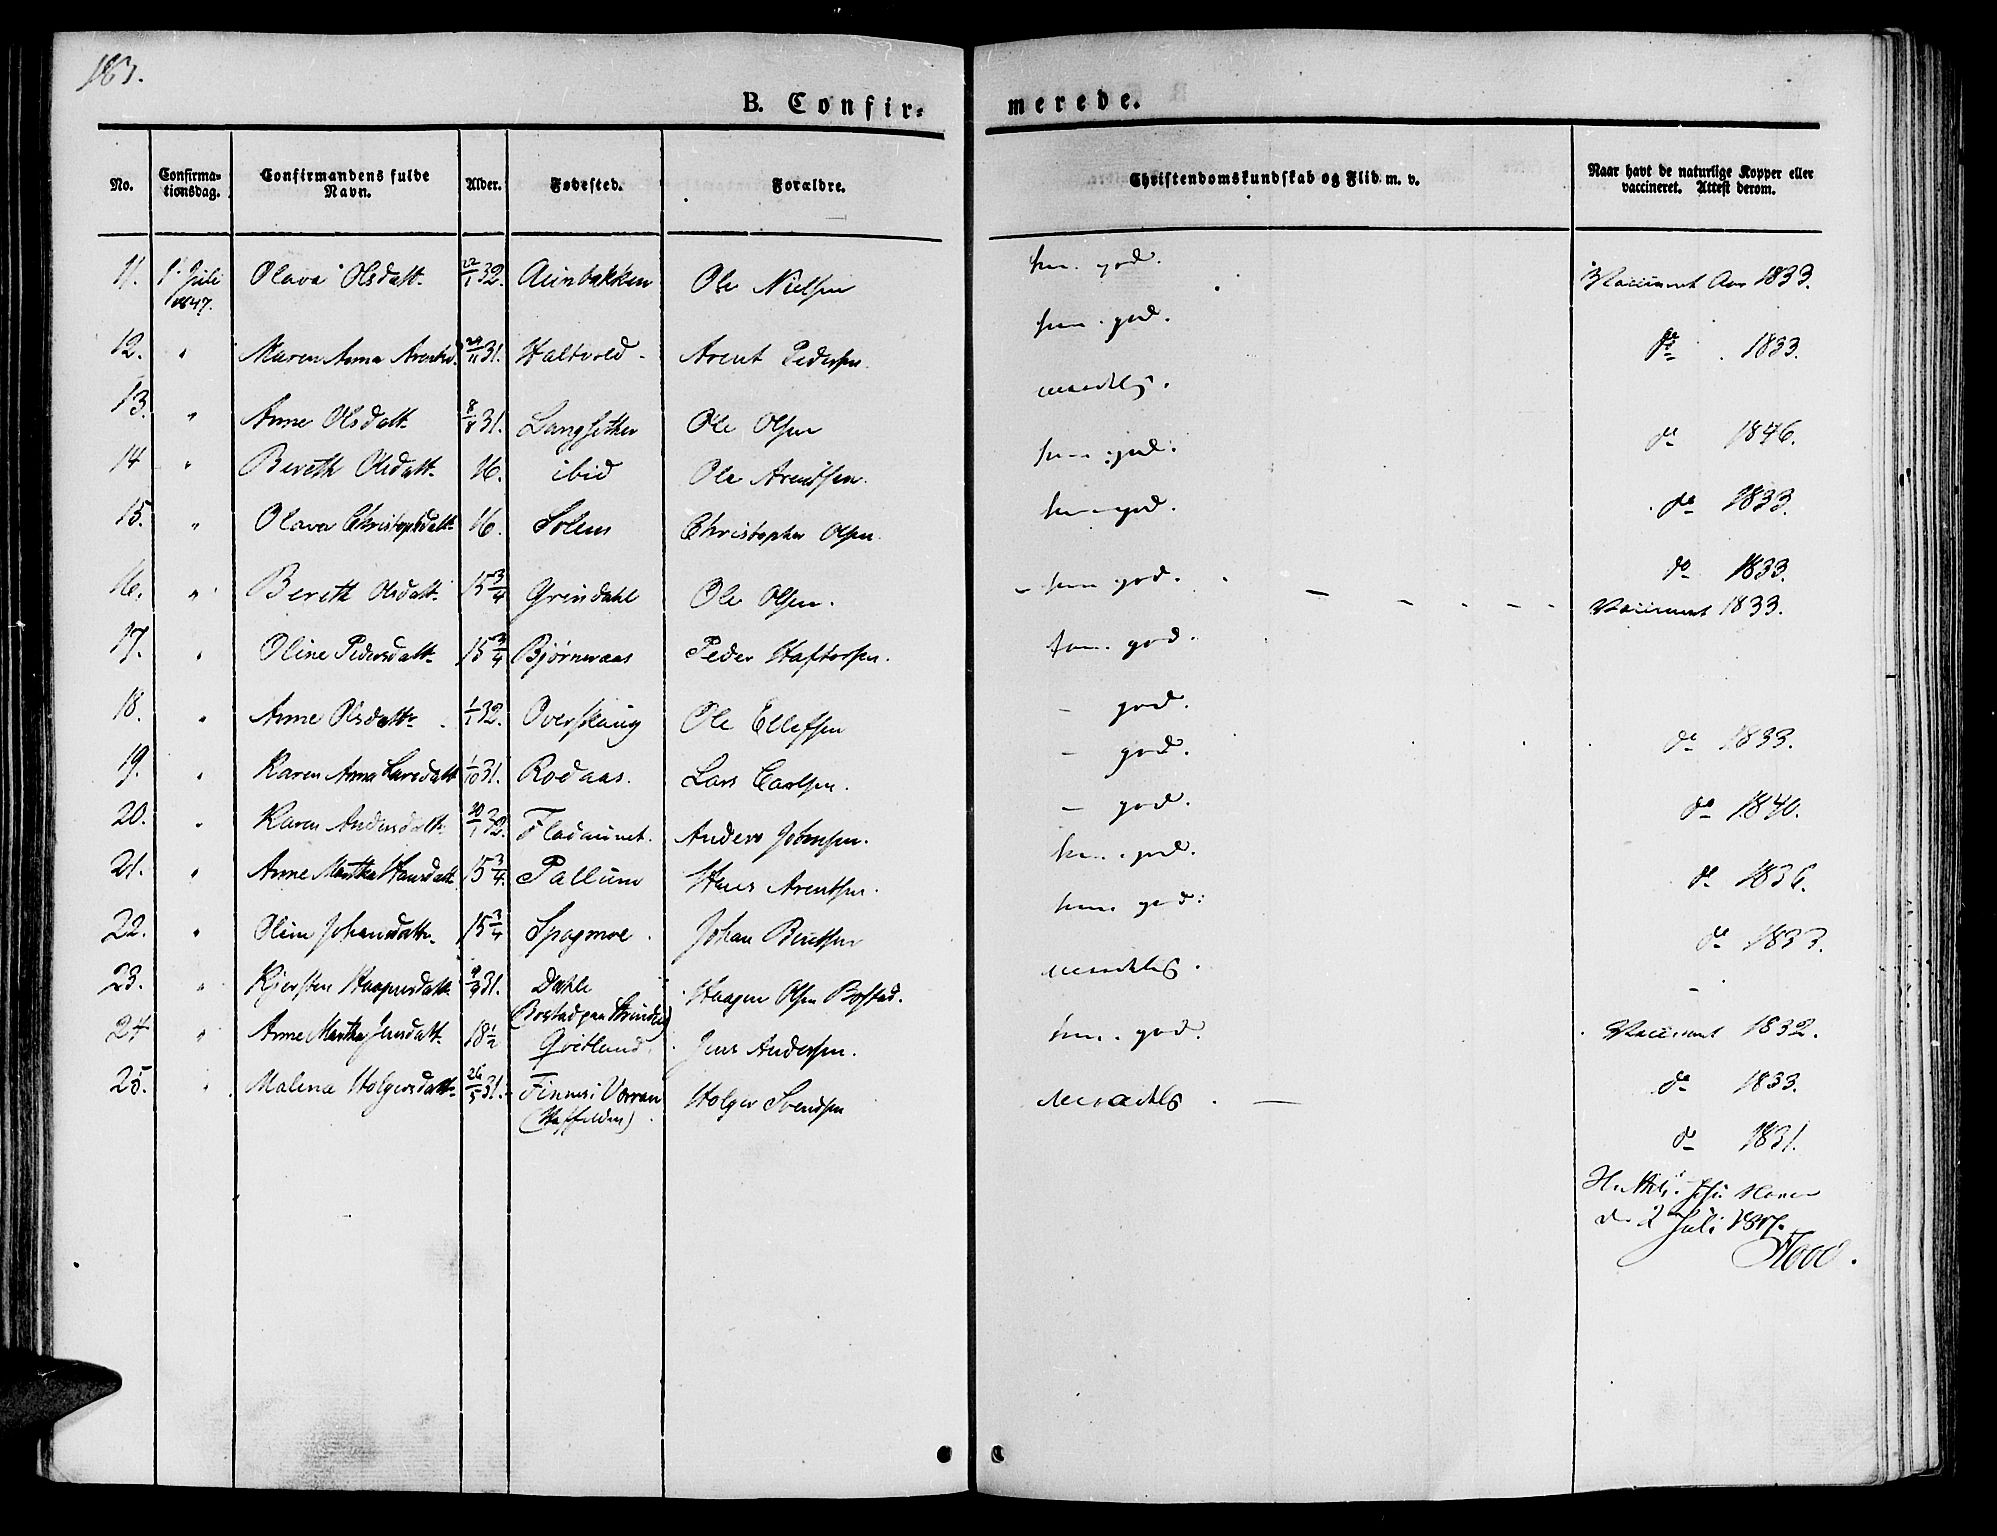 163.
B. Confir-
merede.
No. Confirma-tionsdag. Confirmandens fulde Navn. Alder. Fødested. Forældre. Christendomskundskab og Flid m. v. Naar havt de naturlige Kopper eller vaccineret. Attest derom.
11. 1 Juli 1847. Olava Olsdatt. 22/1 32. Aunbakken Ole Nielsen god. Vaccineret Aar 1833.
12. " Maren Anna 31. Haltvold Arent Pedersen god. do 1833.
13. " Anne Olsdatt. 31. Langsether Ole Olsen maadelig. do 1846.
14 " Bereth Olsdatt. 16. ibid Ole Arentsen. god. do 1833.
15. " Olava Christophsdatt. 16. Solem Christopher Olsen. god. do 1833.
16. " Bereth Olsdatt. 15 3/4 Grindahl Ole Olsen. god. Vaccineret 1833.
17. " Oline Pedersdatt. 15 3/4 Bjørneraas Peder Haftorsen. god.
18. " Anne Olsdatt. 1/1 32. Overskaug Ole Ellefsen – god. do 1833.
19. " Karen Anna Larsdatt. 1/10 31. Rodaas. Lars Carlsen. – god. do 1840.
20. " Karen Andersdatt. 32. Fladmunet. Anders Johnsen. – god. do 1836.
21. " Anne Martha Hansdatt. 15 3/4. Pallum Hans Arentsen. god. do 1833.
22. " Oline Johansdatt. 15 3/4 Spagmoe. Johan Bentsen god. –
23. " Kjersten Haagensdatt. 31. Dahle (Bostad paa Strinden) Haagen Olsen Bostad. maadelig. Vaccineret 1832.
24 " Anne Martha Jensdatt. 18 1/2 Qvitland. Jens Andersen. god. do 1833.
25. " Malena Holgersdatt. 26/5 31. Finnes i Værran Holger Svendsen maadelig. – do 1831.
2 Juli 1847.